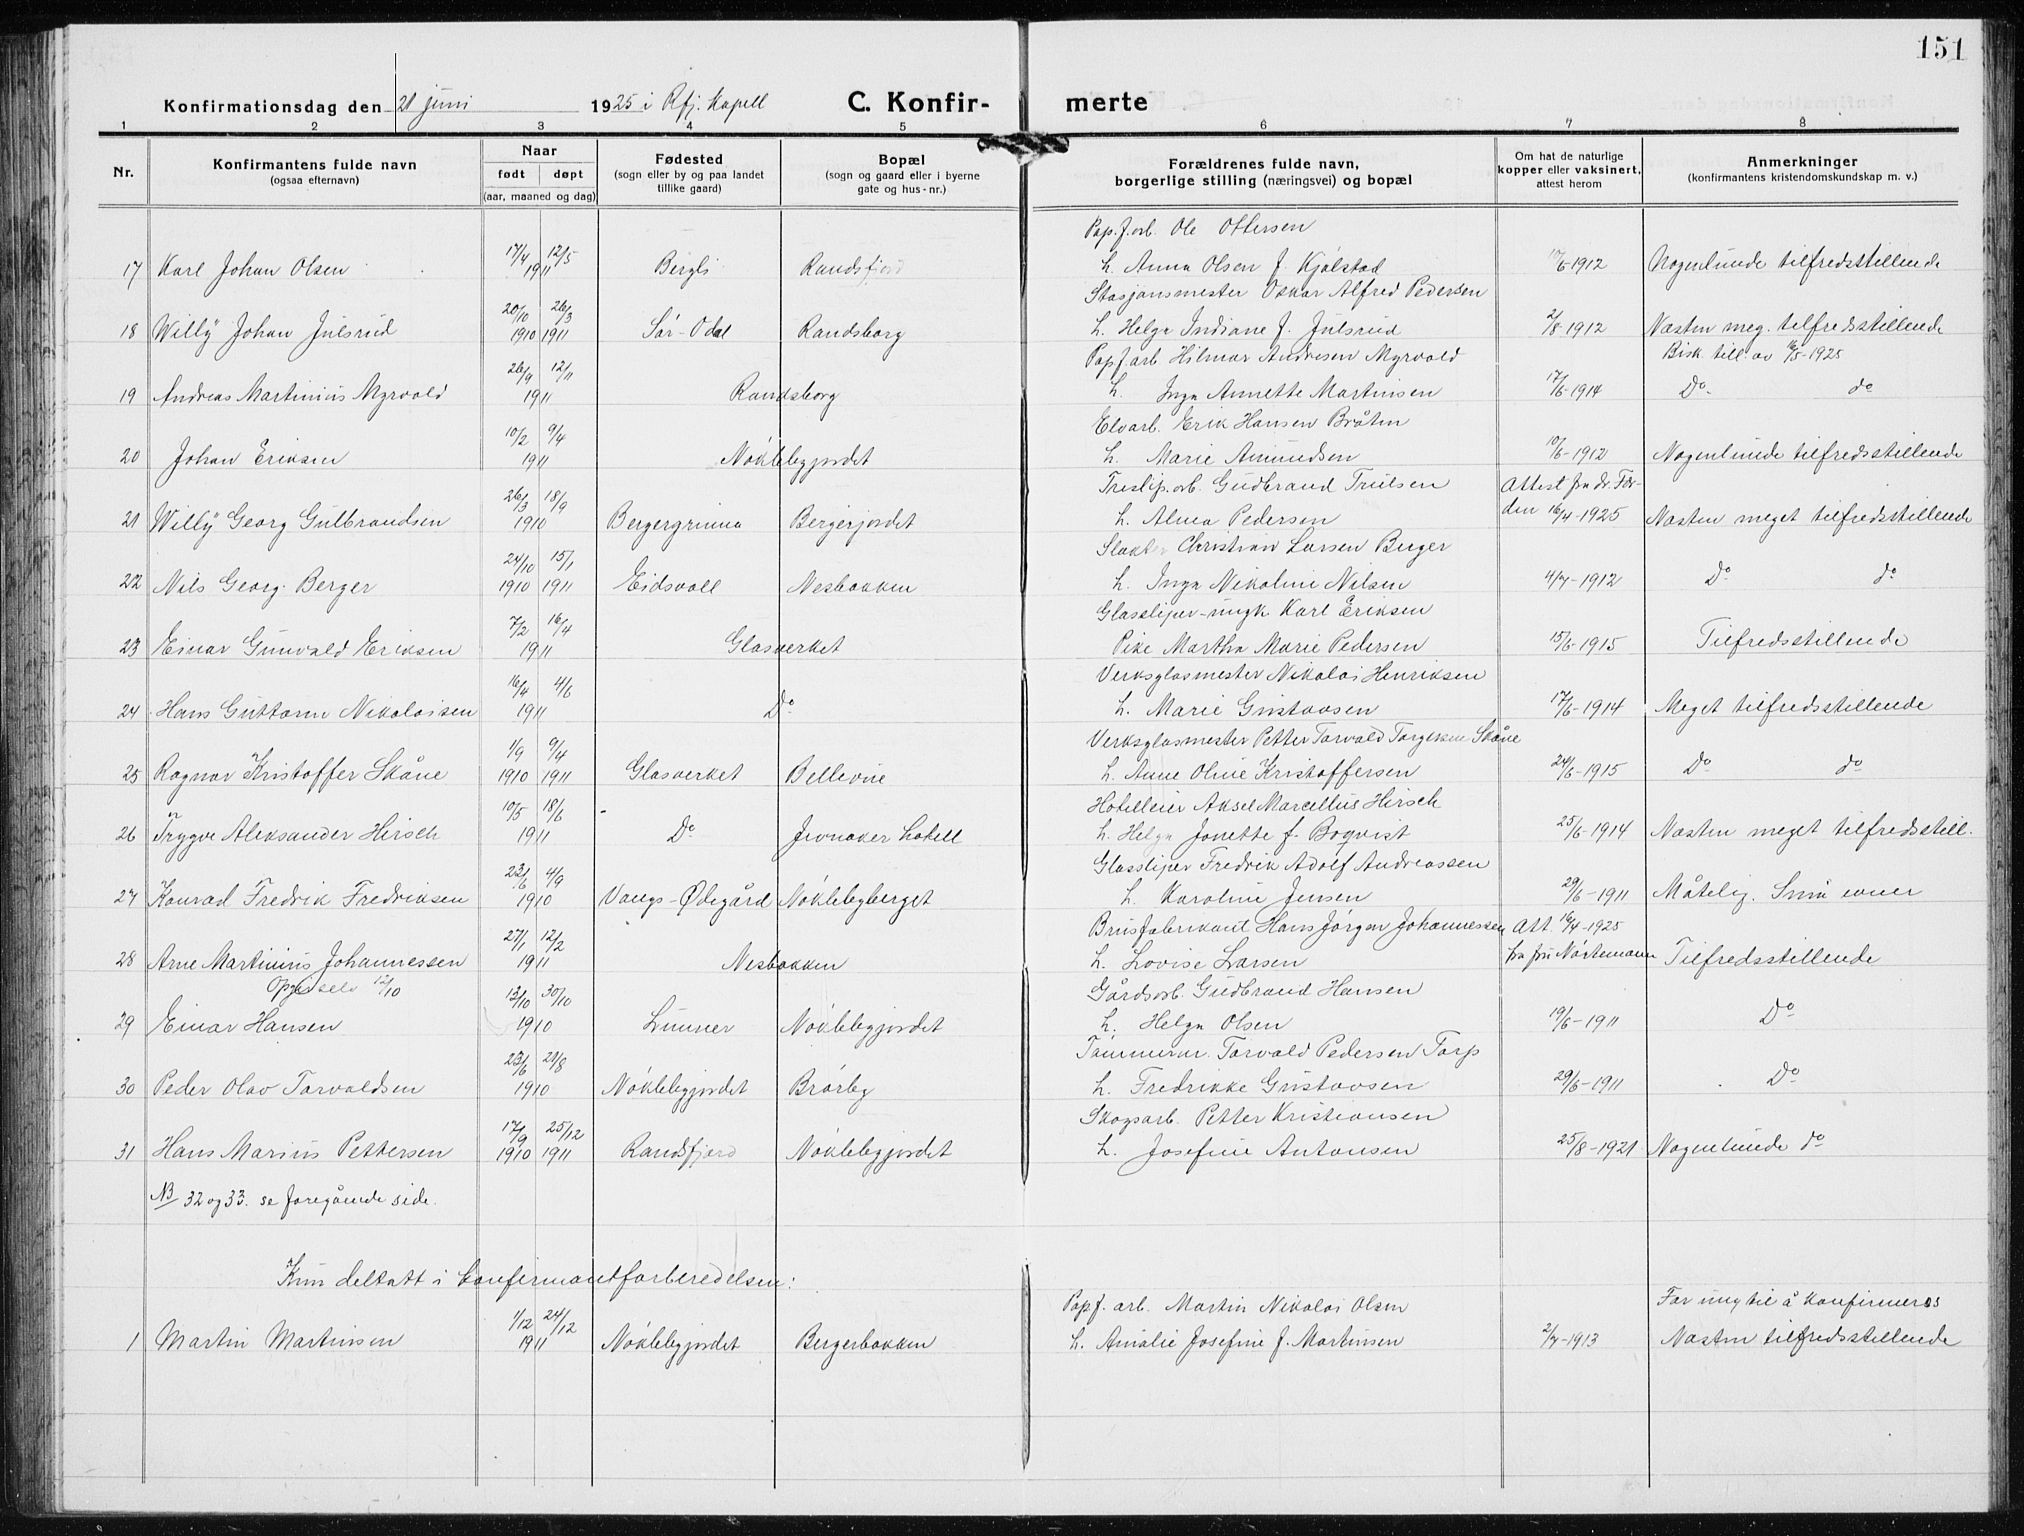 151
Konfirmationsdag den 21 juni 1925 i Rfj. Kapell C. Konfir- merte
1 2 3 4 5 6 7 8
Nr. Konfirmantens fulde navn (ogsaa efternavn) Naar født døpt (aar, maaned og dag) Fødested (sogn eller by og paa landet tillike gaard) Bopæl (sogn og gaard eller i byerne gate og hus-nr.) Forældrenes fulde navn, borgerlige stilling (næringsvei) og bopæl Om hat de naturlige kopper eller vaksinert, attest herom Anmerkninger (konfirmantens kristendomskundskap m. v.)
Pap.f.arb. Ole Ottersen
17 Karl Johan Olsen 17/4 12/5 1911 Bergli Randsfjord h. Anna Olsen f. Kjølstad 17/6-1912 Nogenlunde tilfredsstillende
Stasjonsmester Oskar Alfred Pedersen
18 Willÿ Johan Julsrud 20/10 1910 26/3 1911 Sør-Odal Randsborg h. Helga Indiane f. Julsrud 2/8-1912 Næsten meg. tilfredsstillende
Papf.arb. Hilmar Andresen Myrvold Bisk. till. av 16/5-1925
19 Andreas Martinius Myrvold 26/9 12/11 1911 Randsborg h. Inga Annette Martinsen 17/6-1914 Do. do
Elvarb. Erik Hansen Bråten
20 Johan Eriksen 10/2 9/4 1911 Nøklebyjordet h. Marie Amundsen 10/6-1912 Nogenlunde tilfredsstillende
Treslip.arb. Gudbrand Trulsen Attest fra dr. For-
21 Willÿ Georg Gulbrandsen 26/3 18/9 1910 Bergergrinna Bergerjordet h. Alma Pedersen den 16/4-1925 Næsten meget tilfredsstillende
Slakter Christian Larsen Berger
22 Nils Georg Berger 24/10 1910 15/1 1911 Eidsvoll Nesbakken h. Inga Nikoline Nilsen 4/7-1912 Do do
Glassliper-ungk. Karl Eriksen
23 Einar Gunvald Eriksen 7/2 16/4 1911 Glasverket Pike Martha Marie Pedersen 15/6-1915 Tilfredsstillende
Verksglasmester Nikolai Henriksen
24 Hans Guttorm Nikolaisen 16/4 4/6 1911 Do h. Marie Gustavsen 17/6-1914 Meget tilfredsstillende
Verksglasmester Petter Torvald Torgersen Skåne
25 Ragnar Kristoffer Skåne 1/9 1910 9/4 1911 Glasverket Bellevue h. Anne Oline Kristoffersen 24/6-1915 Do do
Hotelleier Aksel Marcellus Hirsch
26 Trygve Aleksander Hirsch 10/5 18/6 1911 Do Jevnaker hotell h. Helga Jonette f. Boqvist 25/6-1914 Næsten meget tilfredsstill.
Glassliper Fredrik Adolf Andreassen
27 Konrad Fredrik Fredriksen 22/6 4/9 1910 Vangs-Ødegård Nøklebyberget h. Karoline Jensen 29/6-1911 Måtelig. Små evner
Brusfabrikant Hans Jørgen Johannessen Att. 16/4-1925
28 Arne Martinius Johannessen 27/1 12/2 1911 Nesbakken h. Lovise Larsen fra fru Nortemann Tilfredsstillende
Opg. selv 12/10 Gårdsarb. Gudbrand Hansen
29 Einar Hansen 13/10 30/10 1910 Lunner Nøklebyjordet h. Helga Olsen 19/6-1911 Do
Tømmerm. Torvald Pedersen Torp
30 Peder Olav Torvaldsen 23/6 21/8 1910 Nøklebyjordet Brørby h. Fredrikke Gustavsen 29/6-1911 Do
Skogsarb. Petter Kristiansen
31 Hans Marius Pettersen 17/9 1910 25/12 1911 Randsfjord Nøklebyjordet h. Josefine Antonsen 25/8-1921 Nogenlunde do
NB 32 og 33. se foregående side.
Kun deltatt i konfirmantforberedelsen:
Papf. arb. Martin Nikolai Olsen For ung til å konfirmeres
1 Martin Martinsen 1/12 24/12 1911 Nøklebyjordet Bergerbakken h. Amalie Josefine f. Martinsen 2/7-1913 Næsten tilfredsstillende